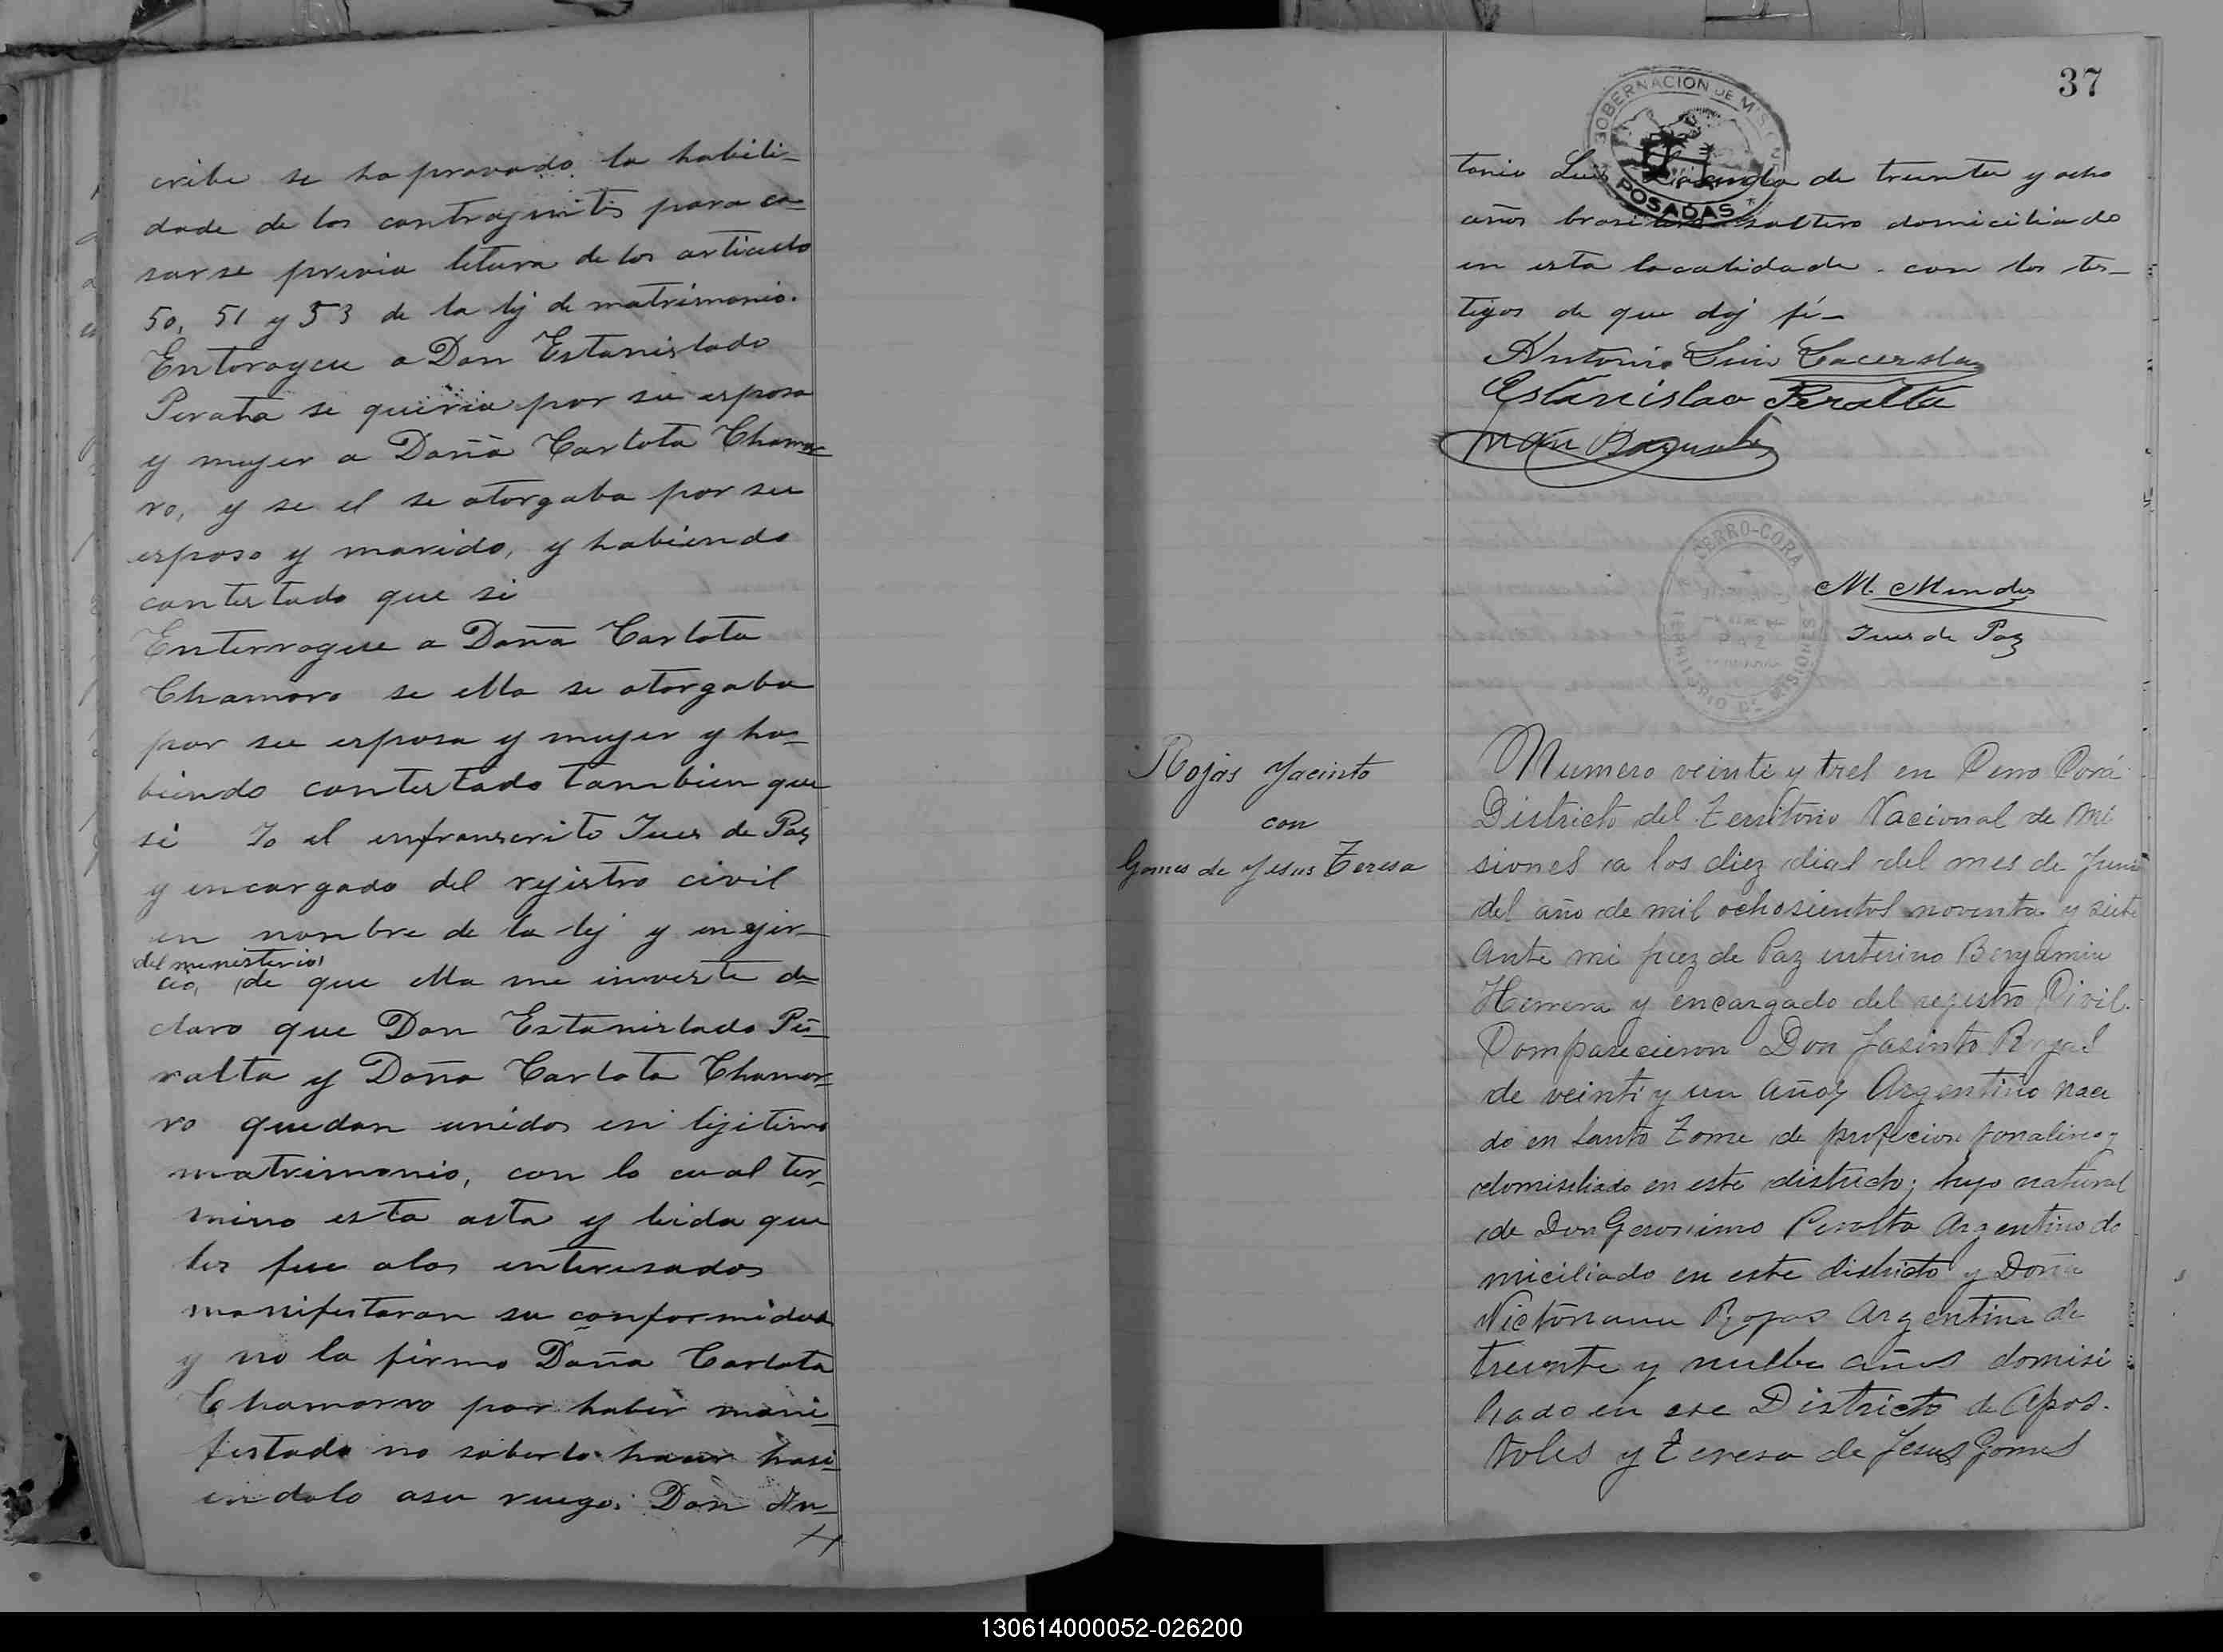 cribe se ha provado la habili-
dade de los contrayentes para ca-
sarse previa letura de los articulo
50, 51 y 53 de la lej de matrimonio.
Entorogeu a Don Estanislado
Peralta se queria por su esposa
y mujer a Doña Carlota Chamor-
ro, y se el se otorgaba por su
esposo y marido, y habiendo
contestado que si
Enterrogue a Doña Carlota
Chamoro se ella se otorgaba
por su esposa y mujer y ha-
biendo contestado tambien que
si Io el enfranscrito Jues de Paz
y encargado del rejistro civil
en nombre de la lej y en ejer-
del ministerio
cio, de que ella me investe de-
claro que Don Estanislado Pe-
ralta y Doña Carlota Chamor-
ro quedan unidos en lejitimo
matrimonio, con lo cual ter-
mino esta acta y leida que
les fue a los enteresados
manifestaron su conformidad
y no la firmo Doña Carlota
Chamorro por haber mani-
festado no saberlo hacer hasi-
endolo asu ruego: Don An-
37
GOBERNACION DE MISIONES
POSADAS
tonio Luis Lacerda de treinta y ocho
años brasilero soltero domiciliado
en esta localidade con los tes-
tigos de que doj fé-
Antonio Luis Lacerda
Estanislao Peralta
Juan
CERRO-CORA
PAZ
TERRITORIO DE MISIONES
M. Mendes
Jues de Paz
Rojas Jacinto
con
Gomes de Jesus Teresa
Numero veinte y tres en Cerro Corá
Districto del Territorio Nacional de Mi
siones a los diez dias del mes de Junio
del año de mil ochosientos noventa y siete
Ante mi juez de Paz interino Benjamin
Herrera y encargado del registro Civil.
Comparecieron Don Jasinto Rojas
de veinti y un años Argentino naci
do en Santo Tome de profecion jornalero y
domisiliado en este districto; hijo natural
de Don Geronimo Peralta Argentino do
miciliado en este districto y Doña
Victoriana Rojas Argentina de
treinta y nuebe años domisi
liado en ese Districto de Apos-
toles y Teresa de Jesus Gomes
130614000052-026200